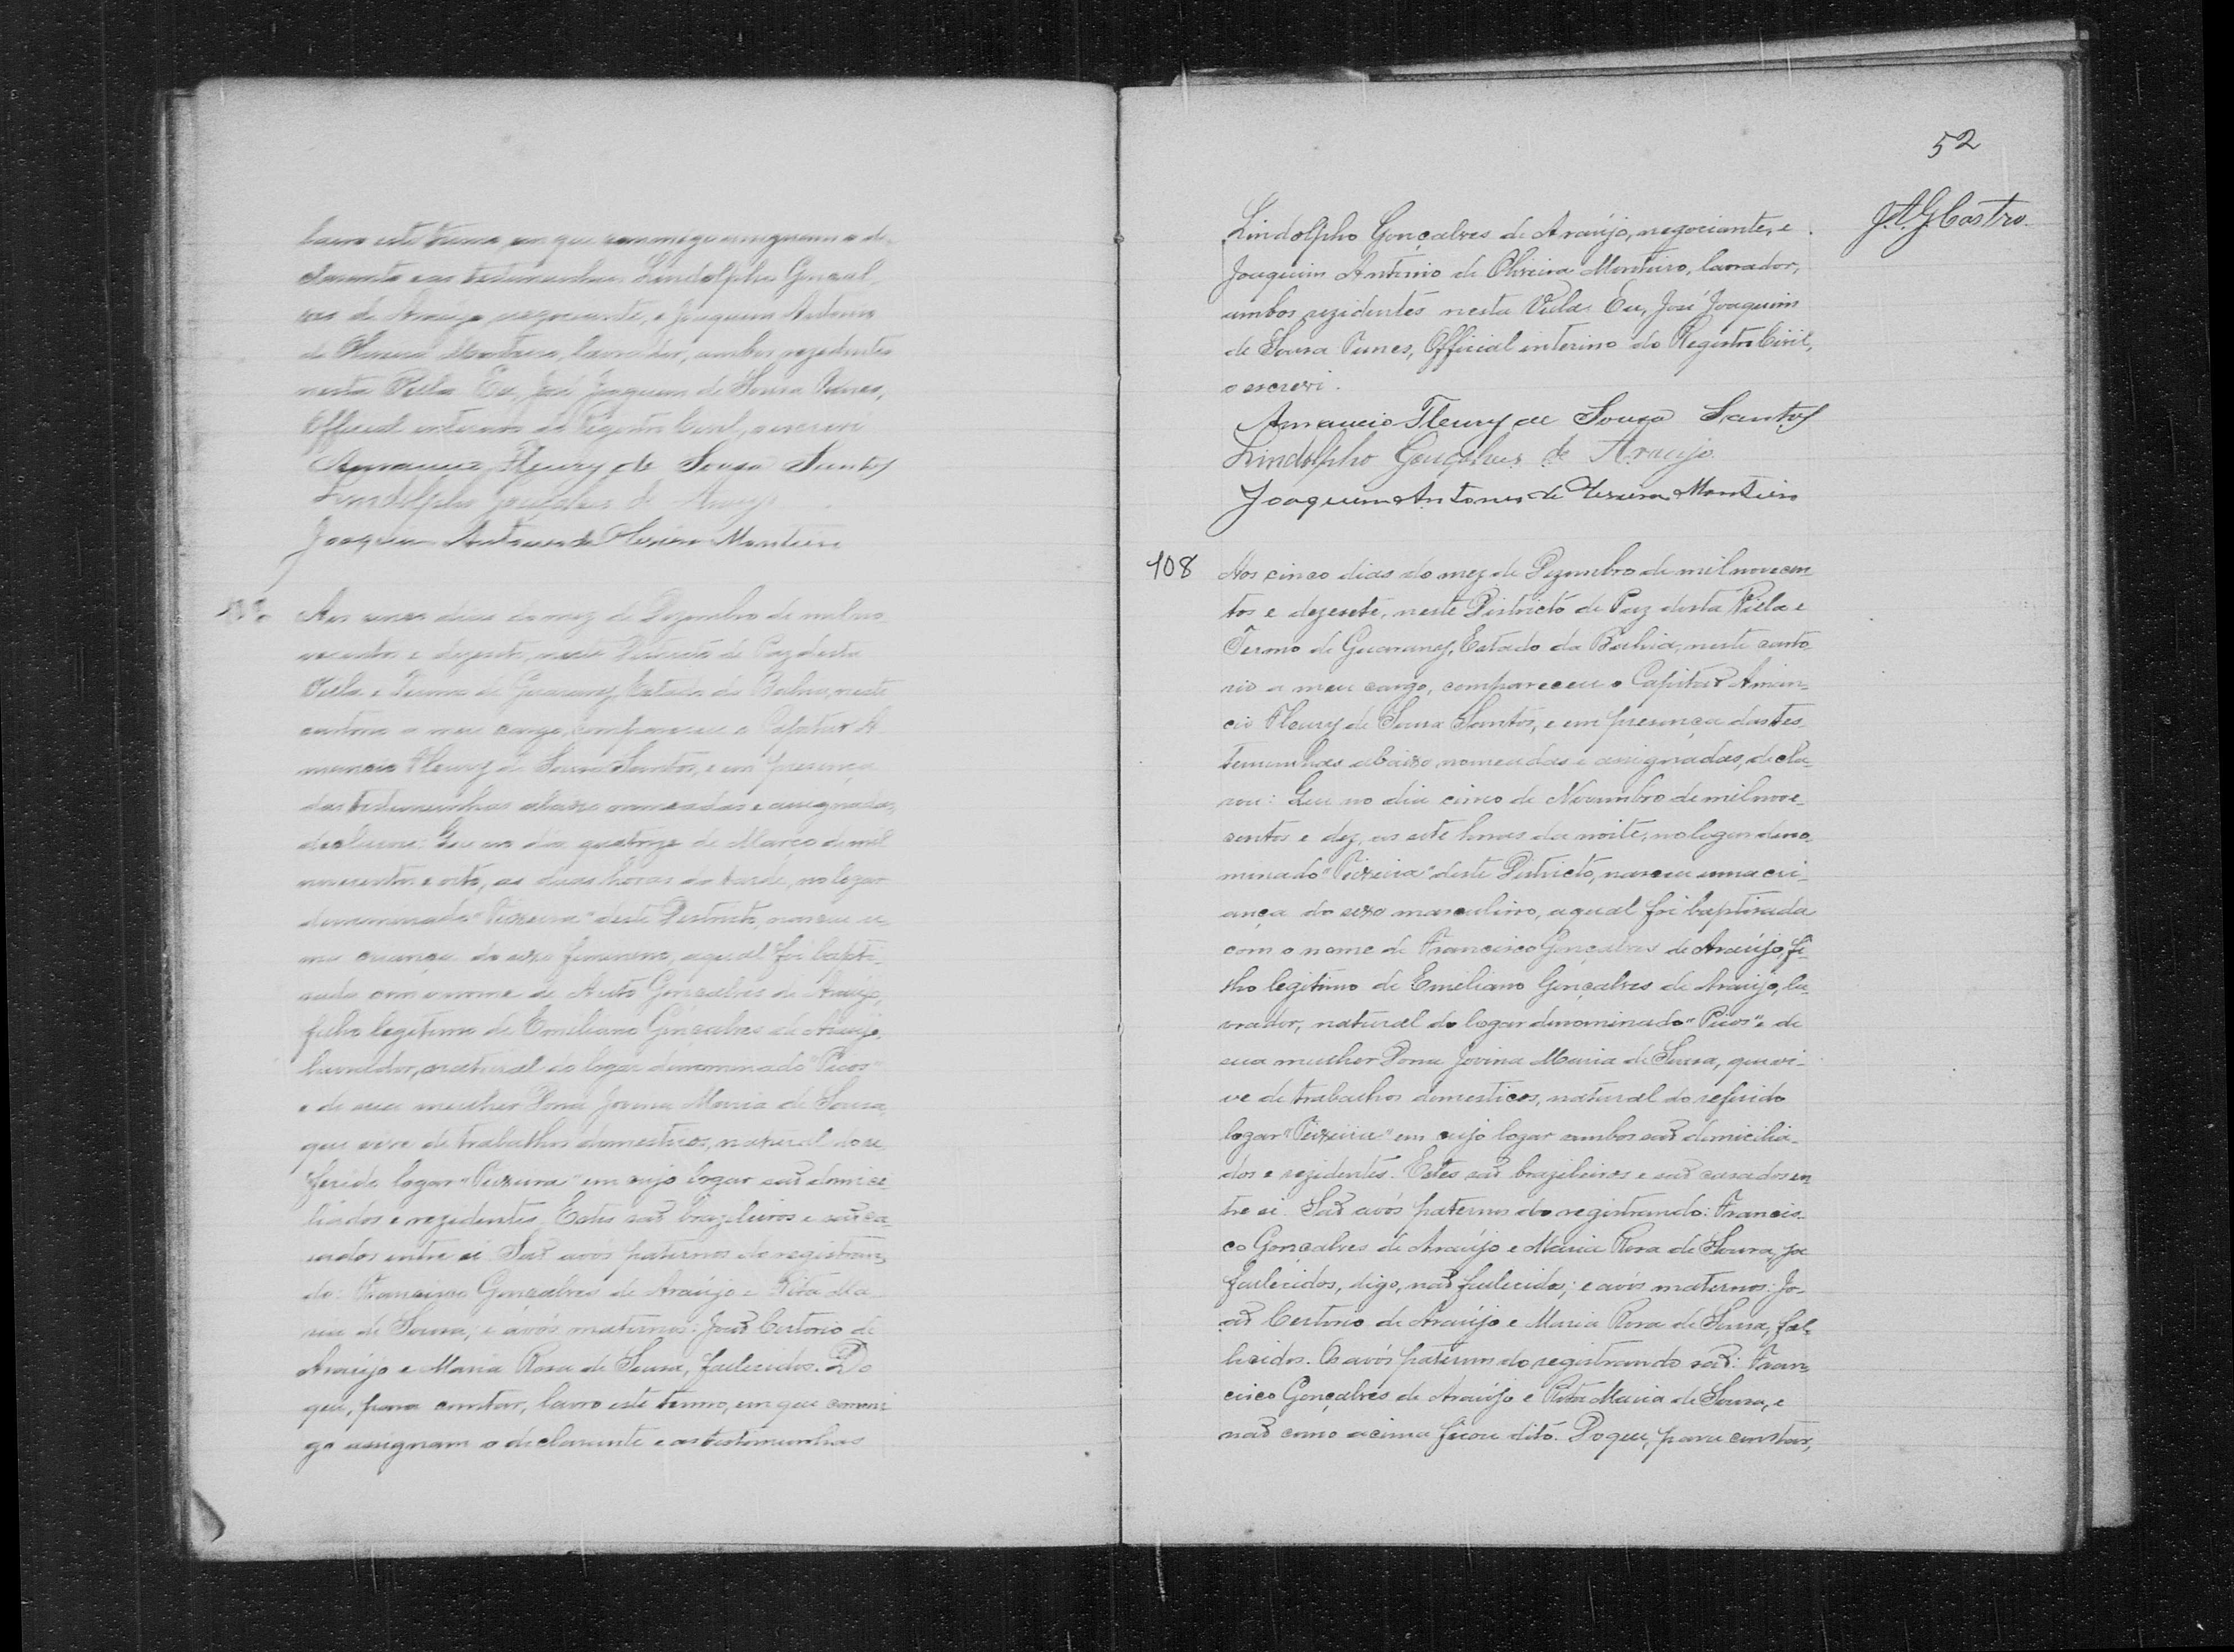 lavro este termo em que commigo assignam o de-
clarante e as testemunhas Lindolpho Gonçal-
ves de Araujo, negociante, e Joaquim Antonio
de Oliveira Monteiro, lavrador, ambos rezidentes
nesta Villa. Eu, José Joaquim de Sousa Nunes,
Official interino do Registro Civil, o escrevi
Amancio Fleury de Sousa Santos
Lindolpho Gonçalves de Araujo
Joaquim Antonio de Oliveira Monteiro
Aos cinco dias do mez de Dezembro de mil no-
vecentos e dezesete, neste Districto de Paz desta
Villa e Termo de Guarany, Estado da Bahia, neste
cartorio a meu cargo, compareceu o Capitão A-
mancio Fleury de Sousa Santos, e em presença
das testemunhas abaixo nomeadas e assignadas,
declarou: Que no dia quatorze de Março de mil
novecentos e oito, as duas horas da tarde, no logar
denominado "Teixeira" deste Districto, nasceu u-
ma criança do sexo feminino, a qual foi bapti-
sada com o nome de Gonçalves de Araujo,
filha legitima de Emiliano Gonçalves de Araujo,
lavrador, natural do logar denominado "Picos"
e de sua mulher Dona Jovina Maria de Sousa,
que vive de trabalhos domesticos, natural do re-
ferido logar "Teixeira" em cujo logar são domici-
liados e rezidentes. Estes são brazileiros e são ca-
sados entre si. São avós paternos do registran-
do: Francisco Gonçalves de Araújo e Rita Ma-
ria de Sousa; e avós maternos: João Certorio de
Araújo e Maria Rosa de Sousa, fallecidos. Do
que, para constar, lavro este termo, em que commi-
go assignam o declarante e as testemunhas
52
J.A.G. Castro.
Lindolpho Gonçalves de Araújo, negociante, e
Joaquim Antonio de Oliveira Monteiro, lavrador,
ambos rezidentes nesta Villa. Eu, José Joaquim
de Sousa Nunes, Official interino do Registro Civil,
o escrevi.
Amancio Fleury de Sousa Santos
Lindolpho Gonçalves de Araujo
Joaquim Antonio de Oliveira Monteiro
108 Aos cinco dias do mez de Dezembro de mil novecen-
tos e dezesete, neste Districto de Paz desta Villa e
Termo de Guarany, Estado da Bahia, neste carto-
rio a meu cargo, compareceu o Capitão Aman-
cio Fleury de Sousa Santos, e em presença das tes-
temunhas abaixo nomeadas e assignadas, decla-
rou: Que no dia cinco de Novembro de mil nove-
centos e dez, as sete horas da noite, no logar deno-
minado "Teixeira" deste Districto, nasceu uma cri-
ança do sexo masculino, a qual foi baptisada
com o nome de Francisco Gonçalves de Araújo, fi-
lho legitimo de Emiliano Gonçalves de Araujo, la-
vrador, natural do logar denominado "Picos" e de
sua mulher Dona Jovina Maria de Sousa, que vi-
ve de trabalhos domesticos, natural do referido
logar "Teixeira" em cujo logar ambos são domicilia-
dos e rezidentes. Estes são brazileiros e são casados en-
tre si. São avós paternos do registrando: Francis-
co Gonçalves de Araújo e Maria Rosa de Sousa, ja
fallecidos, digo, não fallecidos; e avós maternos: Jo-
ão Certorio de Araújo e Maria Rosa de Sousa, fal-
lecidos. Os avós paternos do registrando são: Fran-
cisco Gonçalves de Araújo e Rita Maria de Sousa, e
não como acima ficou dito. Do que, para constar,